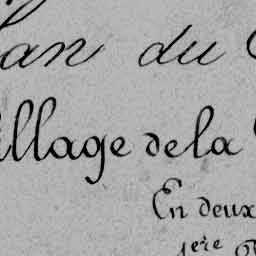 lan du
illage de la
En deux
1ere